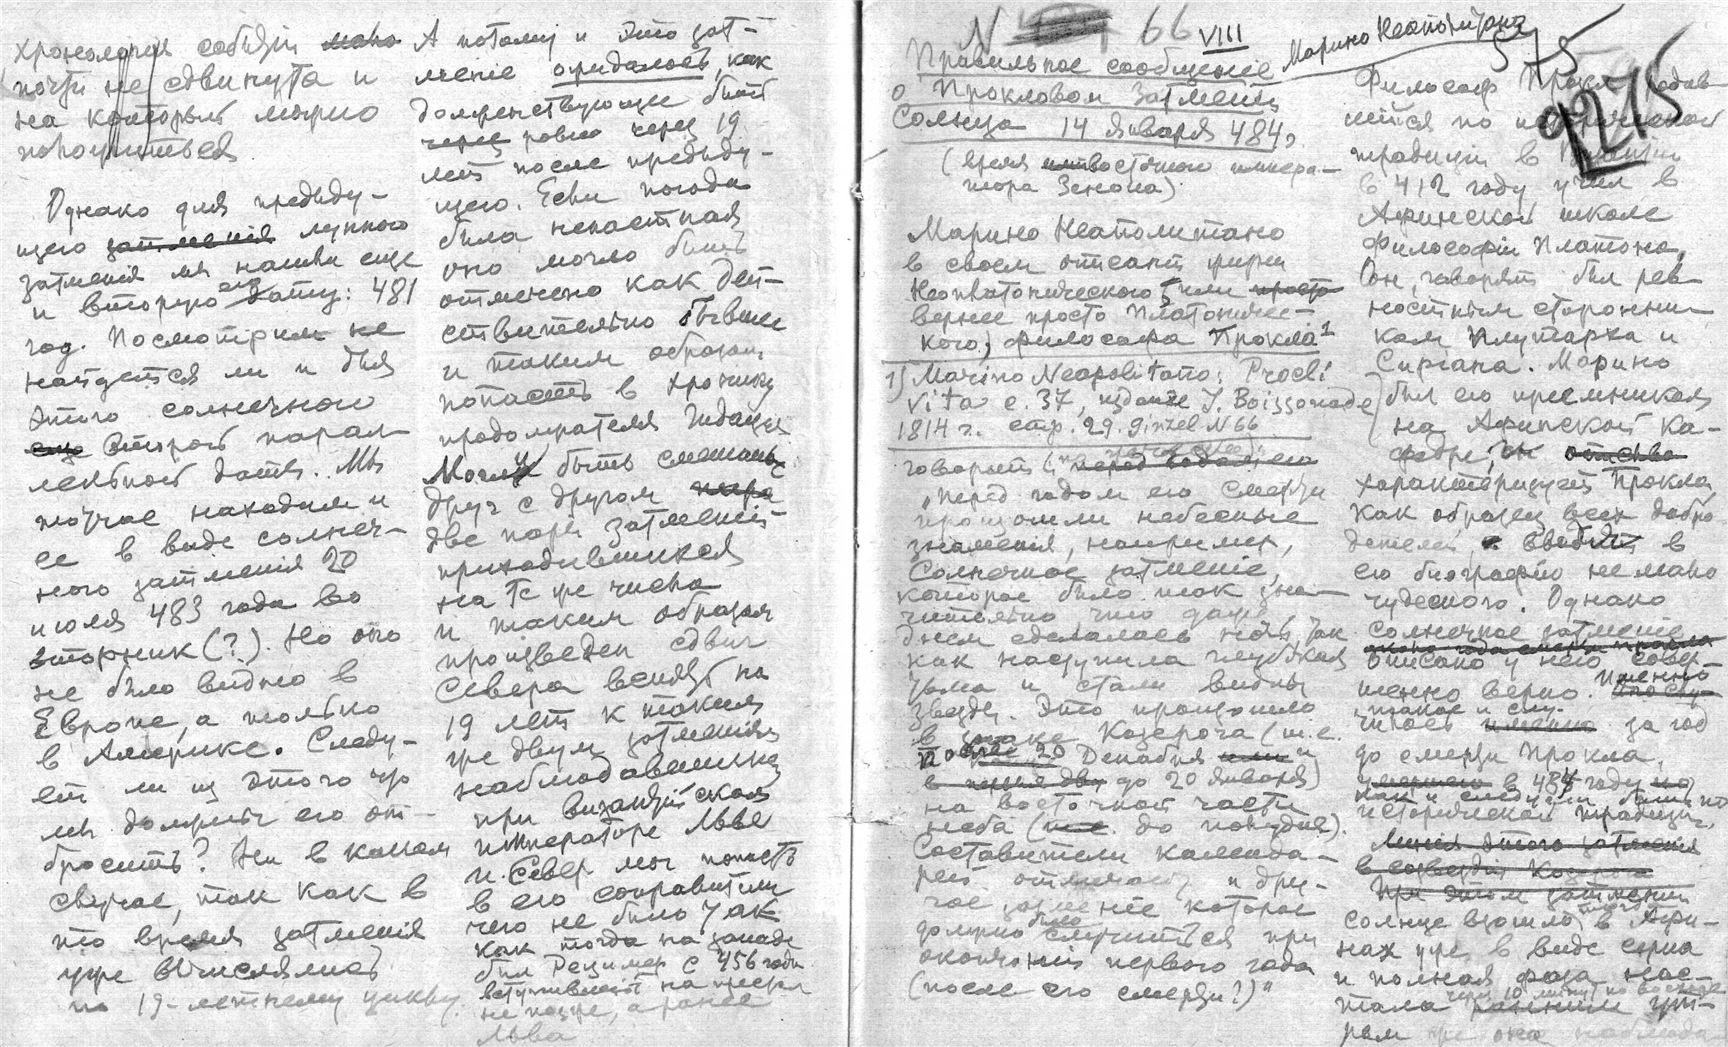 хронология событий мало
почти не сдвинута и
на которых можно
положиться
Однако для предыду-
щего затмения лунного
затмения мы нашли еще
и вторую его дату: 481
год. Посмотрим не
найдется ли и для
этого солнечного
еще второй парал-
лельной даты. Мы
тотчас находим и
ее в виде солнеч-
ного затмения 20
июля 483 года во
вторник (?). Но оно
не было видно в
Европе, а только
в Америке. Следу-
ет ли из этого что
мы должны его от-
бросить? Ни в каком
случае, так как в
то время затмения
уже вычислялись
по 19-летнему циклу.
А потому и это зат-
мение ожидалось, как
долженствующее быть
через ровно через 19
лет после предыду-
щего. Если погода
была ненастная
оно могло быть
отмечено как дей-
ствительно бывшее
и таким образом
попасть в хронику
продолжателя Идация
Могли быть смешаны
друг с другом
две пары затмений
приходившихся
на те же числа
и таким образом
произведен сдвиг
Севера вспять на
19 лет к таким
же двум затмениям
наблюдавшимся
при византийском
императоре Льве
и Север мог попасть
в его соправители
чего не было так
как тогда на западе
был Рецимер с 456 года
вступивший на престол
не позже, а ранее
Льва
N 66 VIII
Марино Неаполитано
575
9275
Правильное сообщение
о Прокловом затмении
Солнца 14 января 484,
(время восточного импера-
тора Зенона)
Марино Неаполитано
в своем описании жизни
Неоплатонического, или просто
вернее просто Платониче-
кого, философа Прокла¹
1) Marino Neapolitano: Procli
Vita c. 37, издание J. Boissonade
1814 г. стр. 29. Ginzel N 66
говорит
„перед годом его смерти
произошли небесные
знамения, например,
Солнечное затмение,
которое было так зна-
чительно что даже
днем сделалась ночь, так
как наступила глубокая
тьма и стали видны
звезды. Это произошло
в знаке Козерога (т.е.
после 20 Декабря или и
в первые дни до 20 Января)
на восточной части
неба (т.е. до полудня).
Составители календа-
рей отмечают и дру-
гое затмение которое
должно было случиться при
окончании первого года
(после его смерти?)“
Философ Прокл родив-
шийся по исторической
традиции в
в 412 году учил в
Афинской школе
философии Платона,
Он, говорят был рев-
ностным сторонни-
ком Плутарха и
Сириана. Марино
был его преемником
на Афинской ка-
федре, он
характеризует Прокла
как образец всех добро-
детелей, вводит в
его биографию немало
чудесного. Однако
солнечное затмение
описано у него совер-
шенно верно. Именно
такое и слу-
чилось именно за год
до смерти Прокла,
в 484 году
как и следует быть по
исторической традиции.
Линия этого затмения
в созвездии Козерога
При этом затмении
солнце взошло в Афи-
нах уже в виде серпа
и полная фаза нас-
тала через 10 минут по восходе
ранним ут-
ром